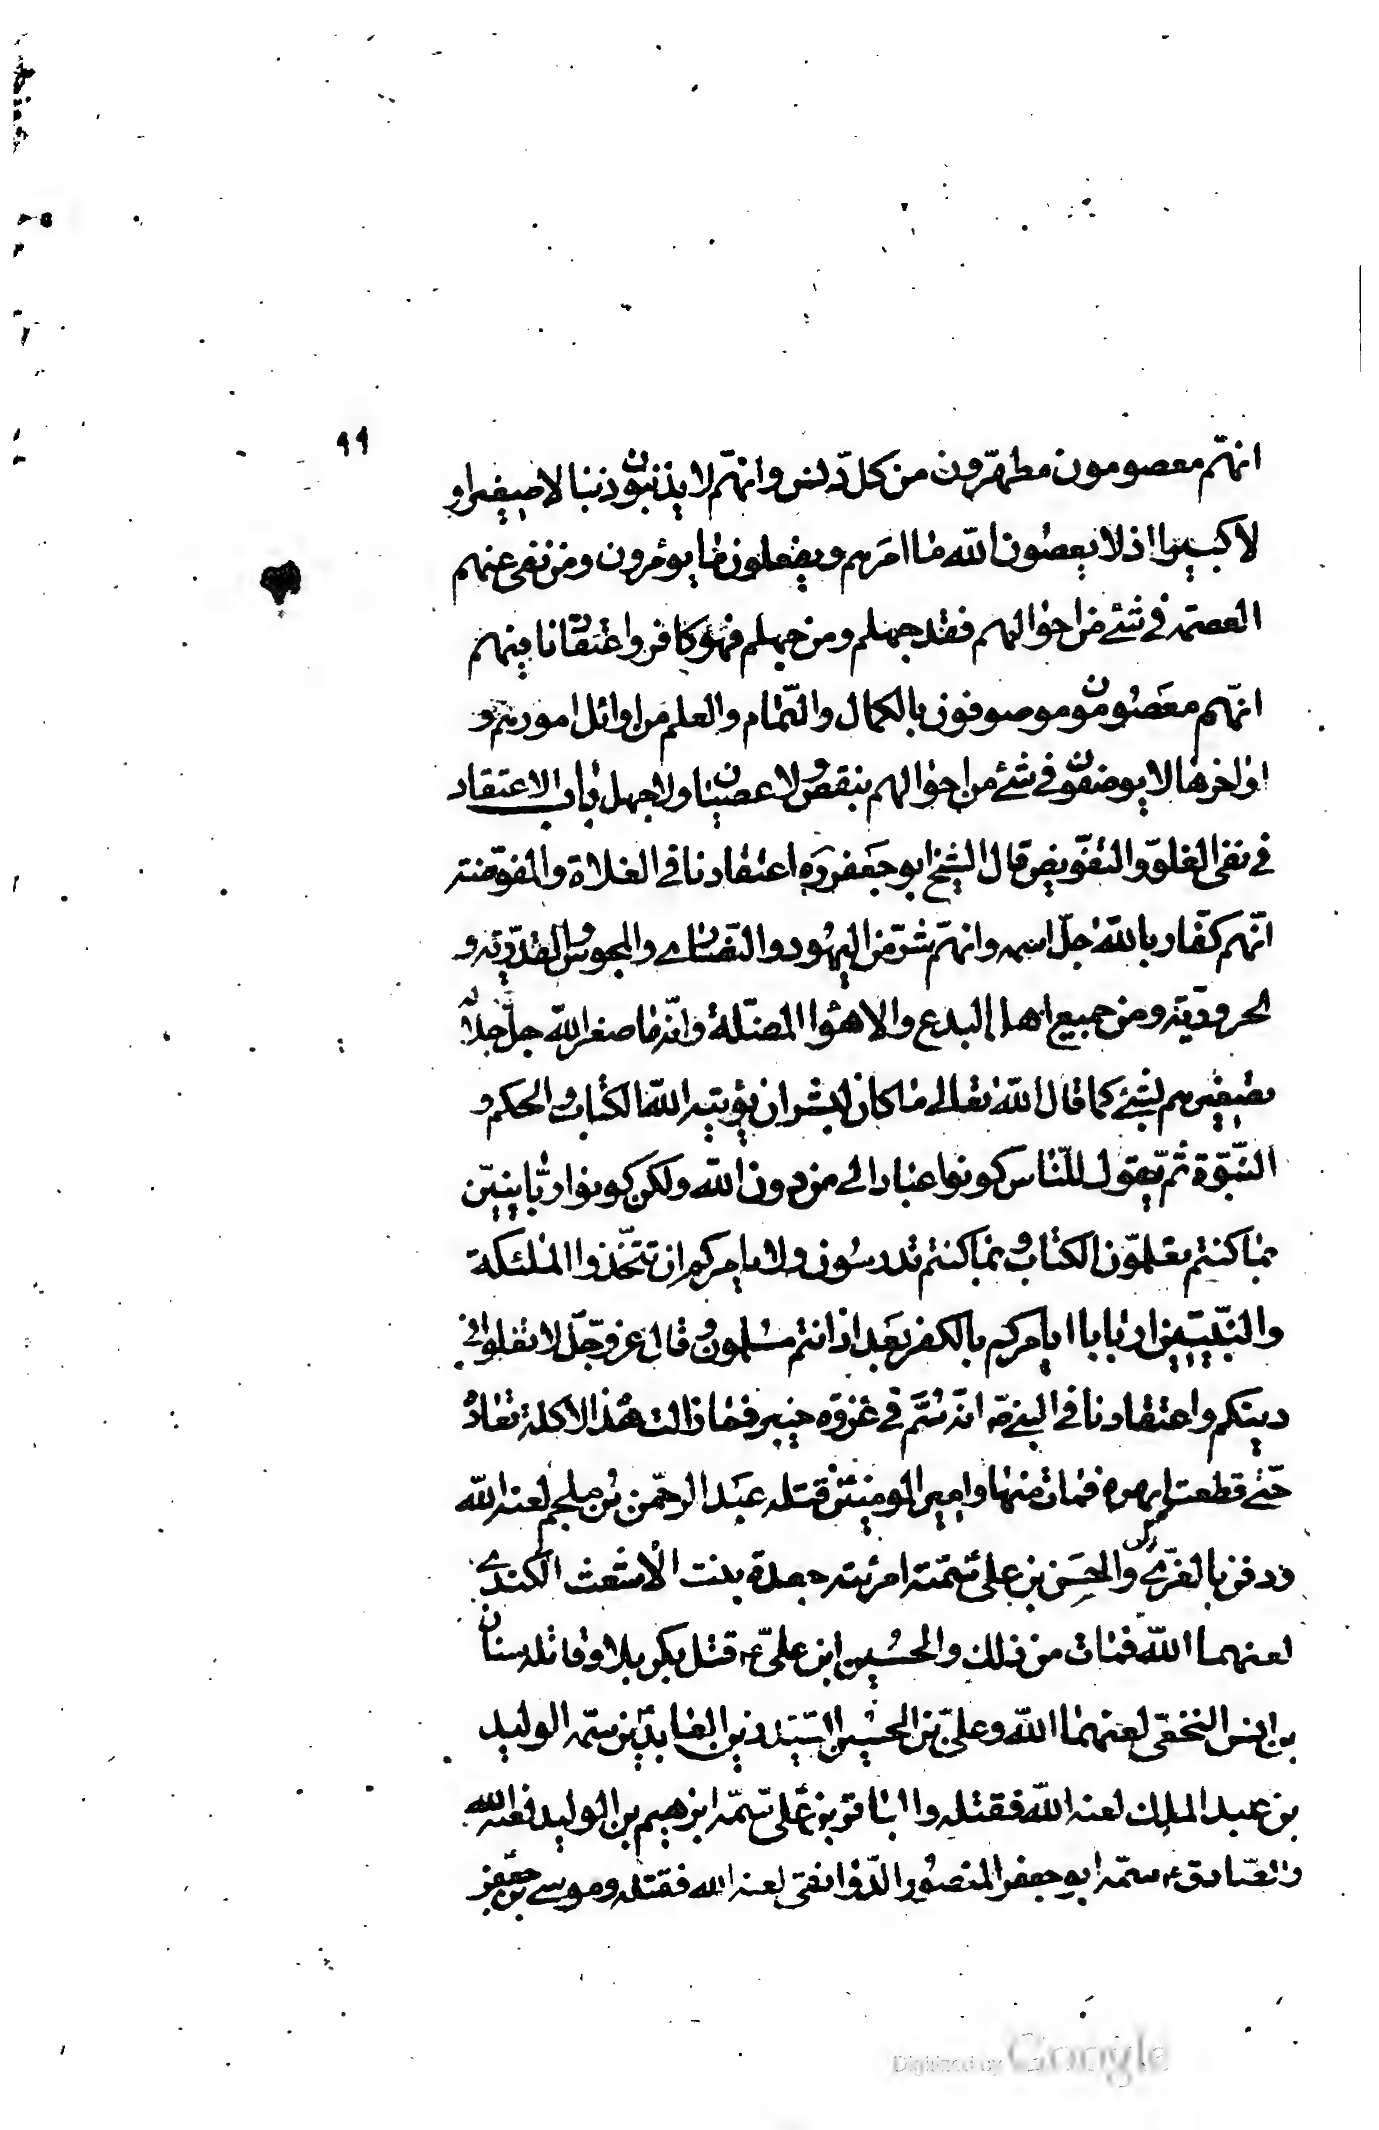 ٩٩
انهّم معصومون مطهرّون من كلّ دنس وانهّم لا يذنبون ذنبا لا صغيرا و
لا كبيرا اذ لا يعصون الله ما امرهم ويفعلون ما يؤمرون ومن نفى عنهم
العصمة في شئ من احوالهم فقد جهلهم ومن جهلهم فهو كافر واعتقادنا فيهم
انهّم معصومون موصوفون بالكمال والتمّام والعلم من اوائل امورهم و
اواخرها لا يوصفون في شئ من احوالهم بنقص ولا عصيان ولا جهل باب الاعتقاد
في نفى الغلوّ والتفويض قال الشيخ ابو جعفر ره اعتقادنا في الغلاة والمفوّضة
انهّم كفّار بالله جلّ اسمه وانهّم شرّ من اليهود والنصّارى والمجوس والقدريّة و
الحروريّة ومن جميع اهل البدع والاهوا المضلّة وانّه ما صغر الله جلّ جلاله
تصغيرهم لشئ كما قال الله تعالى ما كان لبشر ان يؤتيه الله الكتاب والحكم و
النبّوة ثمّ يقول للنّاس كونوا عبادا لي من دون الله ولكن كونوا ربّانييّن
بما كنتم تعلمّون الكتاب وبما كنتم تدرسون ولا يامركم ان تتخّذوا الملئكة
والنبّييّن اربابا ايامركم بالكفر بعد اذ انتم مسلمون وقال عزّ وجلّ لا تغلوا في
دينكم واعتقادنا في النبي صّ انّه سُمّ في غزوة خيبر فما زالت هذه الاكلة تعاده
حتّى قطعت ابهره فمات منها وامير المومنين قتله عبد الرحمّن بن ملجم لعنه الله
ودفن بالغرّي والحسن بن على سمّته امرئته جعدة بنت الاشعث الكندى
لعنهما الله فمات من ذلك والحسُين ابن علىّ ع قتل بكربلا وقاتله سنان
بن انس النخعّي لعنهما الله وعلىّ بن الحسين السيّد زين العابديّن سمّه الوليد
بن عبد الملك لعنه الله فقتله والباقر بن على سمّه ابرهيم بن الوليد لعنه الله
والصّادق ع سمّه ابو جعفر المنصور الدّوانقي لعنه الله فقتله وموسى بن جعفر
Digitized by Google